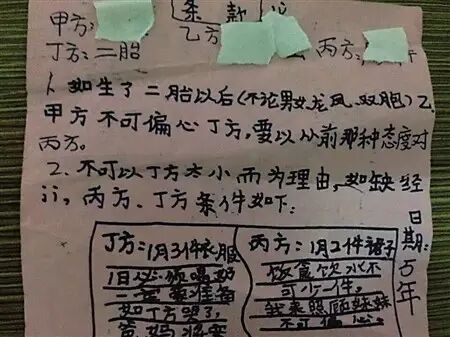 条款
甲方:
乙方
丙方:
丁方:二胎
1、如生了二胎以后(不论男女龙凤、双胞)乙
甲方不可偏心丁方,要以从前那种态度对
丙方。
2、不可以丁方太小而为理由,如缺经
丙方、丁方条件如下:
日期:万年
丁方:1月3件衣服
1日必须喝奶
一定要准备
如丁方哭了,
爸妈
丙方:1月2件裙子
饭食饮水不
可少一件。
我来照顾妹妹
不可偏心。